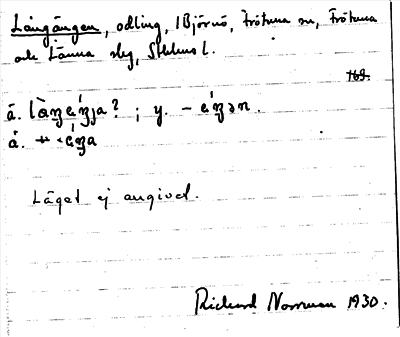 Långängen, odling, 1 Björnö, Frötuna sn, Frötuna
och Länna slg, Sthlms l.
169.
å. làŋeŋja? ; y. – éŋən.
å. " – éŋa
Läget ej angivet.
Richard Norrman 1930.